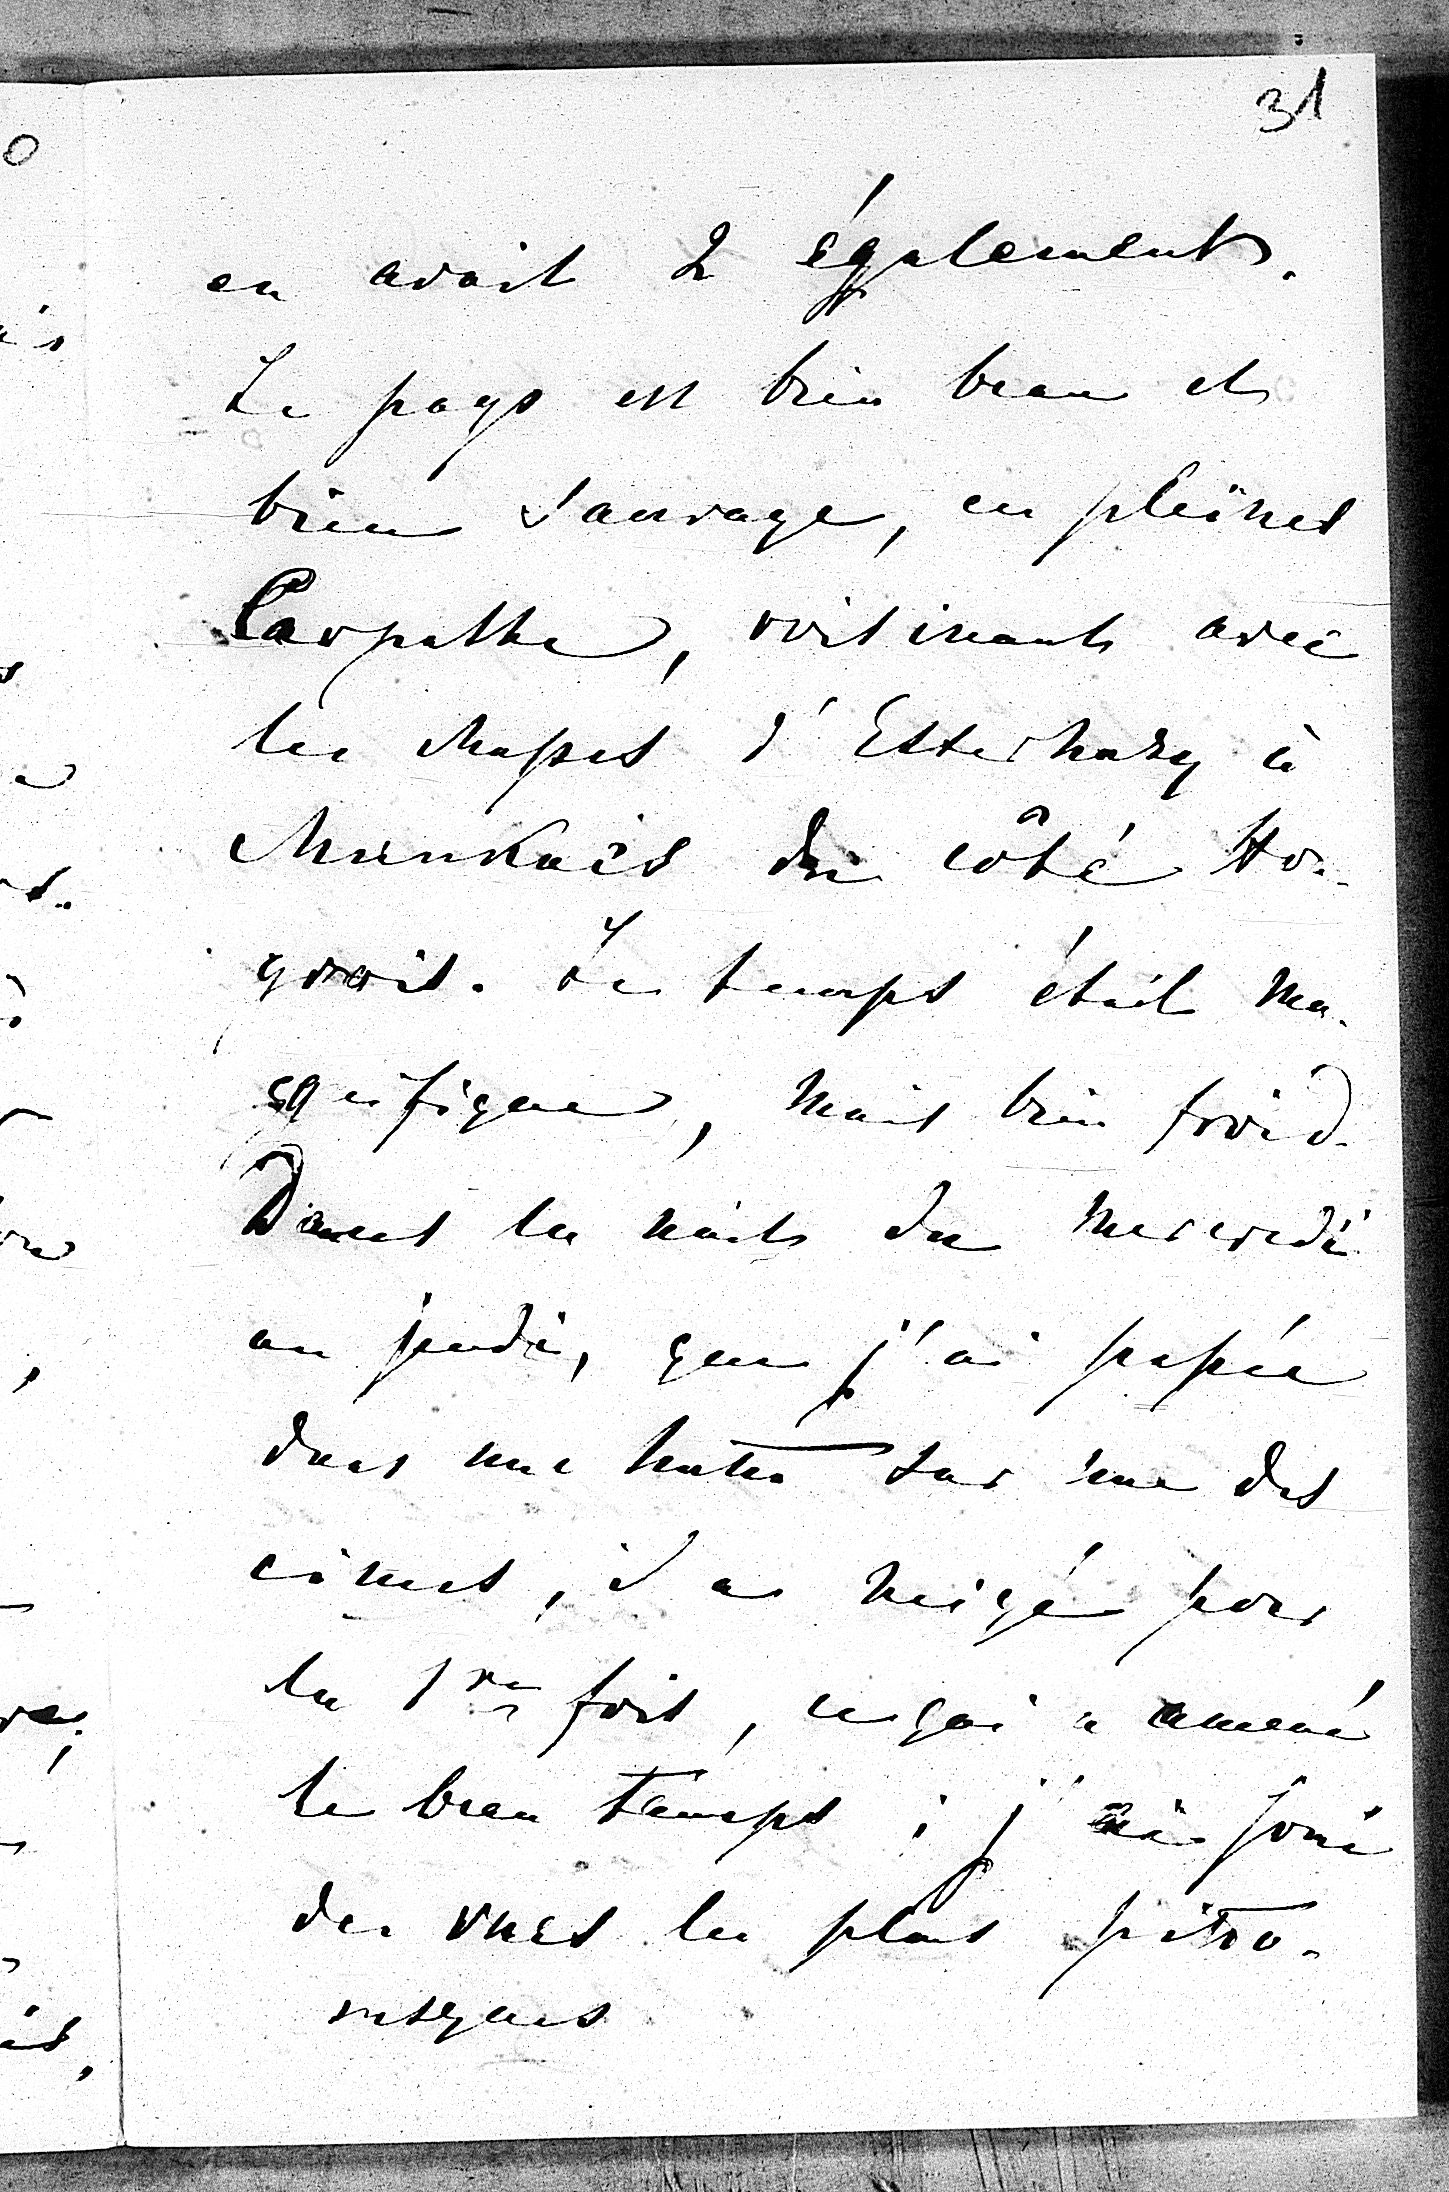 31
en avait 2 également.
Le pays est bien beau et
bien sauvage, en pleines
Carpathe, voisinant avec
les chasses d'Esterhazy à
Munkács du côté Ho-
grois. Le temps était ma-
gnifique, mais bien froid.
Dans la nuit du mercredi
au jeudi, que j'ai passée
dans une hutte sur une des
cimes, il a neigé pour
la 1re fois, ce qui a amené
le beau temps ; j'ai joui
des vues les plus pitto-
resques